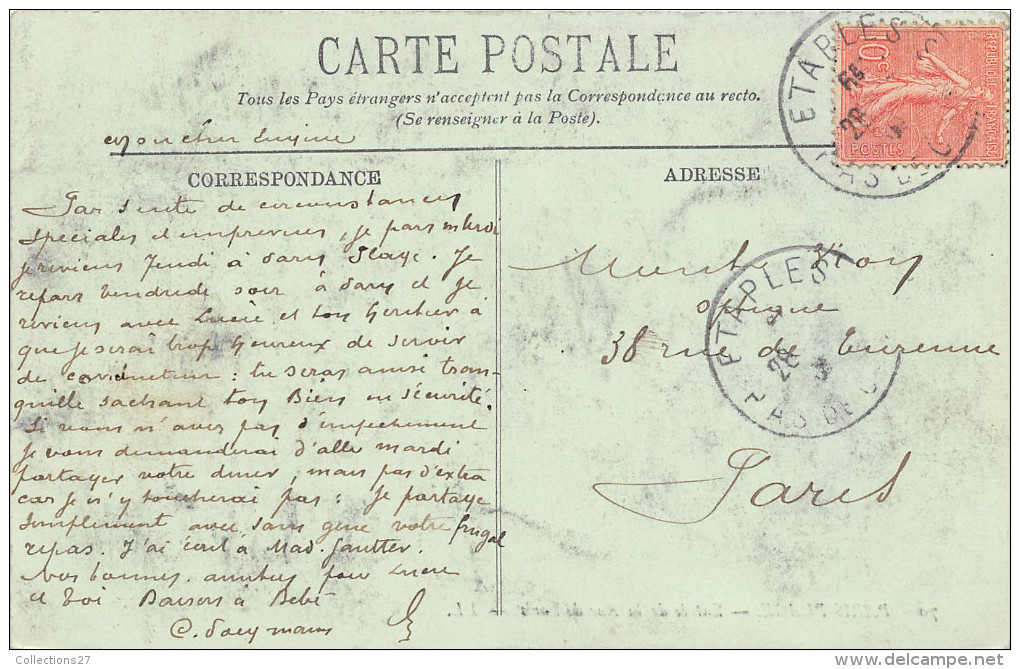 CARTE POSTALE
Tous les Pays étrangers n'acceptent pas la Correspondance au recto.
(Se renseigner à la Poste).
Mon cher Eugène
CORRESPONDANCE
Par suite de circonstances
spéciales et imprévues, je pars mkroi
je reviens Jeudi à Paris Plage. Je
repars vendredi soir à Paris et je
reviens avec Lucie et ton héritier à
que je serai trop heureux de servir
de conducteur : tu seras ainsi tran-
quille sachant ton Bien en sécurité.
Si vous n'avez pas d'empêchement
je vous demanderai d'aller mardi
partager votre diner, mais pas d'extra
car je n'y toucherai pas : je partage
simplement avec sans gene votre frugal
repas. J'ai écrit à Mad. Gautter.
Nos bonnes amitiés pour Lucie
et toi Baisers à Bébé
ADRESSE
optique
38 rue de Turenne
Paris
ETAPLES
28
PAS DE C
10c
REPUBLIQUE FRANÇAISE
POSTES
ETAPLES
28
PAS DE C
PARIS-PLAGE. — Entrée de la Rue de Paris — LL.
Collections27
www.delcampe.net